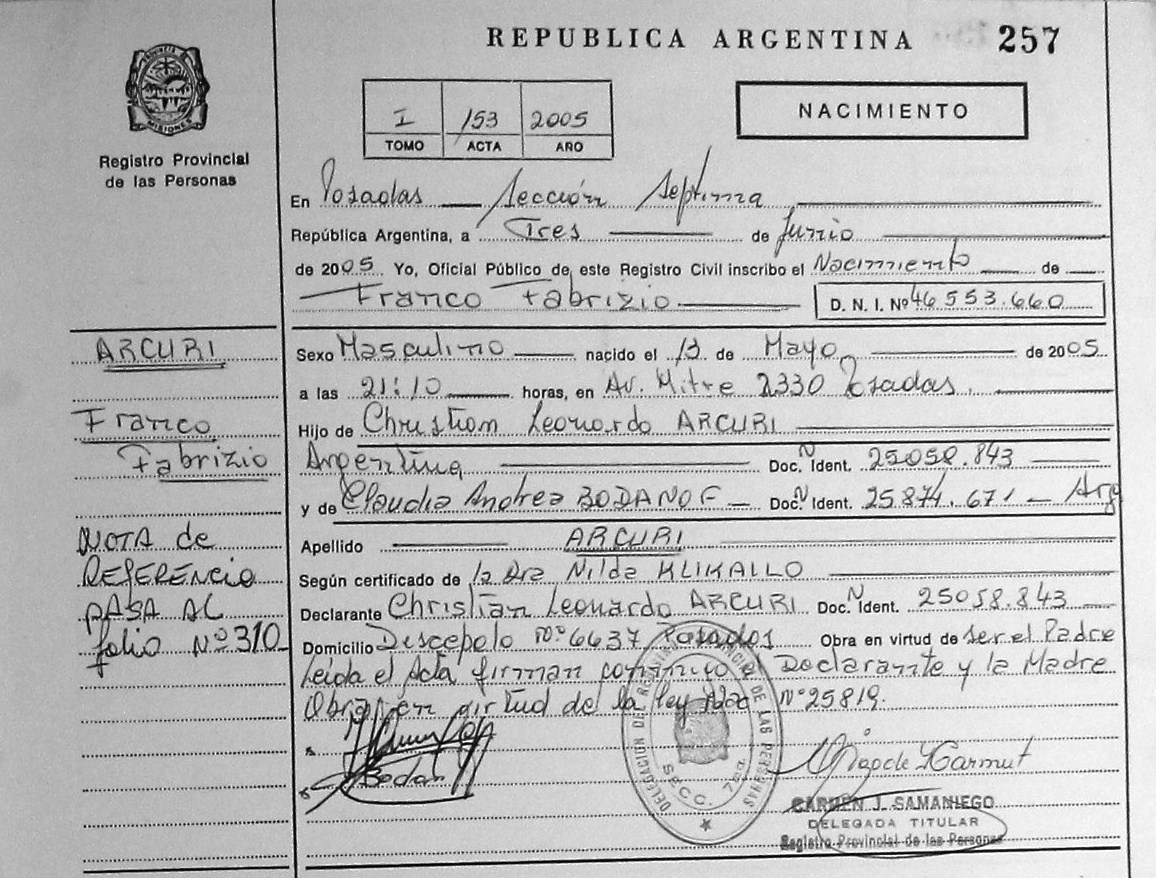 REPUBLICA ARGENTINA 257
PROVINCIA DE
MISIONES
Registro Provincial
de las Personas
I 153 2005
TOMO ACTA AÑO
NACIMIENTO
En Posadas Sección Septima
República Argentina, a Tres de Junio
de 2005 Yo, Oficial Público de este Registro Civil inscribo el Nacimiento de
Franco Fabrizio D. N. I. Nº 46 553.660
ARCURI
Franco
Fabrizio
NOTA de
REFERENCIA
PASA AL
folio Nº 310
Sexo Masculino nacido el 13 de Mayo de 2005
a las 21:10 horas, en Av. Mitre 2330 Posadas.
Hijo de Christian Leonardo ARCURI
Argentina Doc. N Ident. 25058.843
y de Claudia Andrea BODANOF Doc. N Ident. 25874.671 Arg
Apellido ARCURI
Según certificado de la Dra Nilda KLIKAILO
Declarante Christian Leonardo ARCURI Doc. N Ident. 25058.843
Domicilio Discepolo nº 6637 Posadas Obra en virtud de ser el Padre
Leida el Acta firman conmigo el Declarante y la Madre
Obra en virtud de la ley Nac Nº 25819.
DELEGACION DEL REGISTRO PROVINCIAL DE LAS PERSONAS
SECC. 7ma.
CARMEN J. SAMANIEGO
DELEGADA TITULAR
Registro Provincial de las Personas